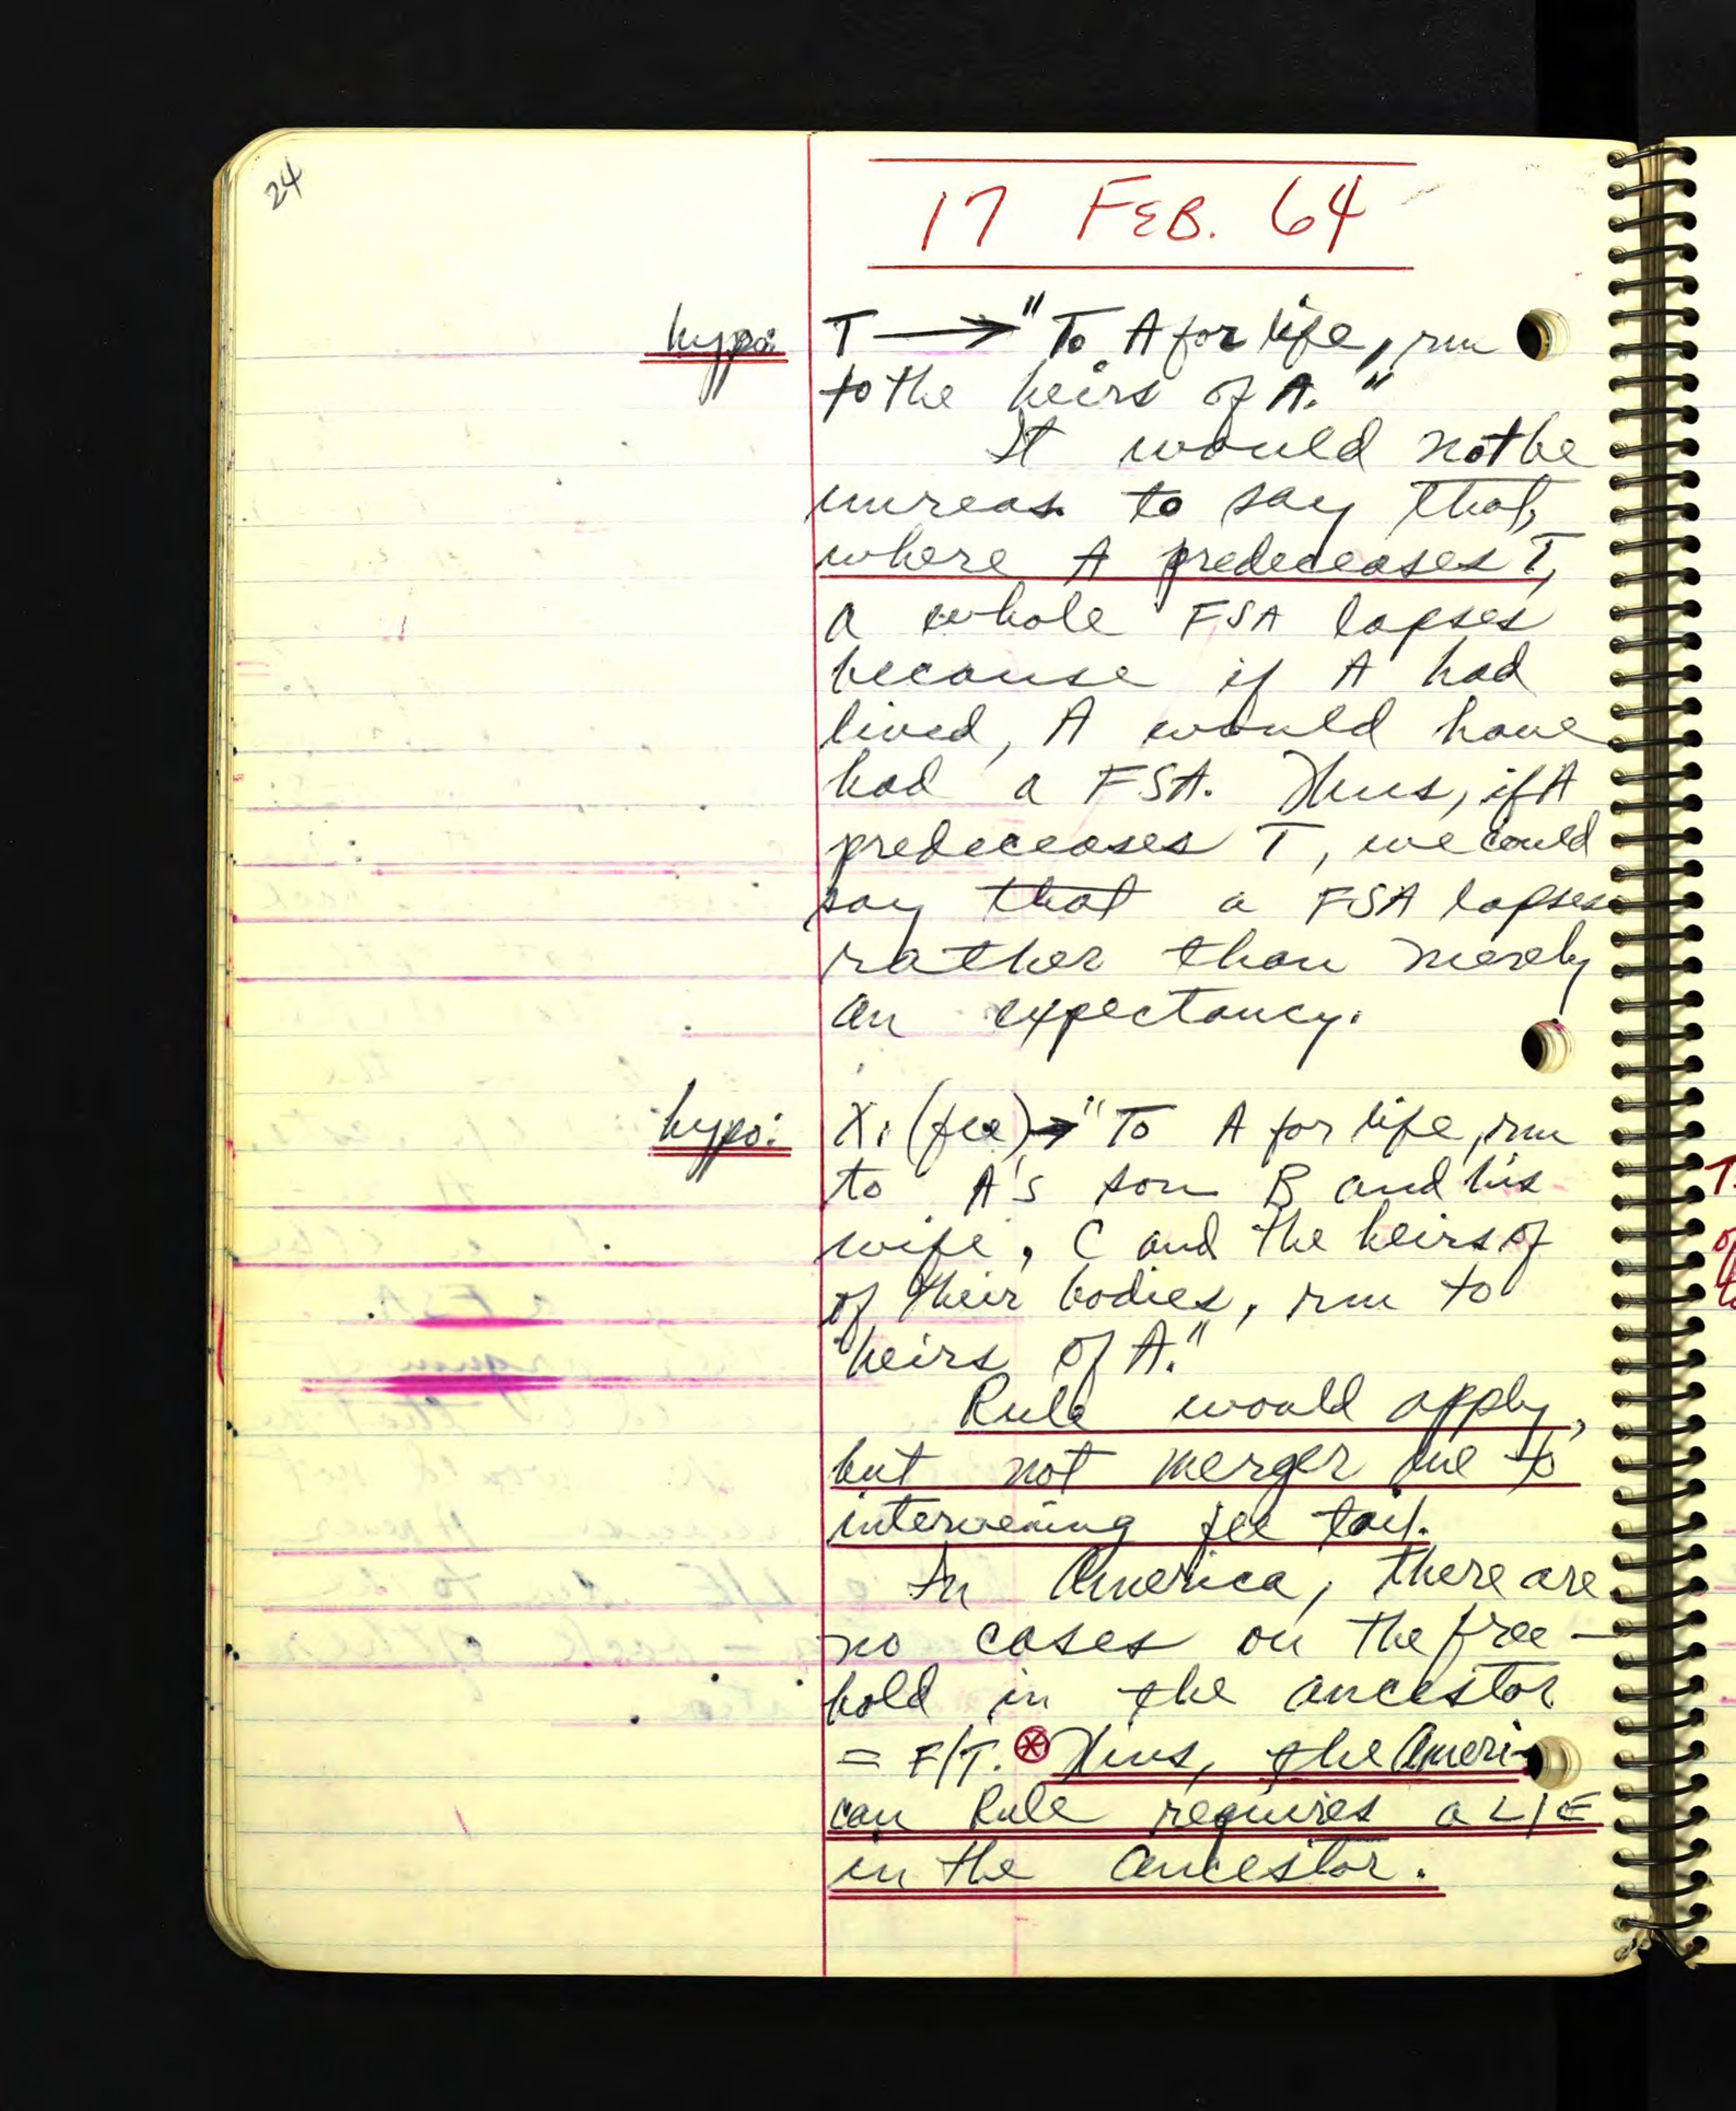 24
17 FEB. 64
hypo: T → "To A for life, rm
to the heirs of A."
It would not be
unreas. to say that,
where A predeceases T,
a whole FSA lapses
because if A had
lived, A would have
had a FSA. Thus, if A
predeceases T, we could
say that a FSA lapses
rather than merely
an expectancy.
hypo: X, (fee) → "To A for life, rm
to A's son B and his
wife, C and the heirs of
of their bodies, rm to
heirs of A."
Rule would apply,
but not merger due to
intervening fee tail.
In America, there are
no cases on the free-
hold in the ancestor
= F/T. ⊛ Thus, the Ameri-
can Rule requires a L/E
in the ancestor.